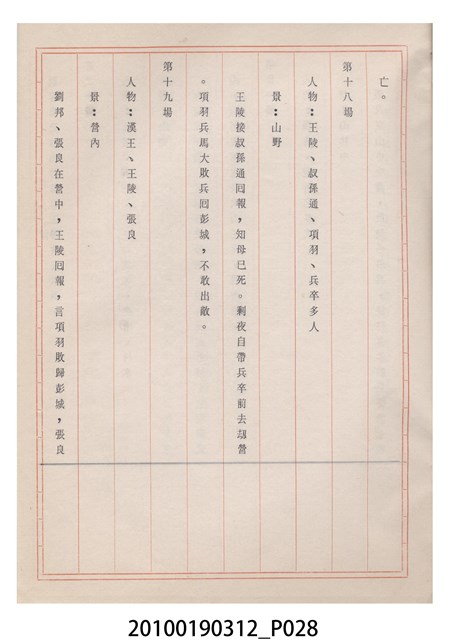 亡。
第十八場
人物：王陵、叔孫通、項羽、兵卒多人
景：山野
王陵接叔孫通囘報，知母已死。剩夜自帶兵卒前去刼營
。項羽兵馬大敗兵囘彭城，不敢出敵。
第十九場
人物：漢王、王陵、張良
景：營內
劉邦、張良在營中，王陵囘報，言項羽敗歸彭城，張良
20100190312_P028